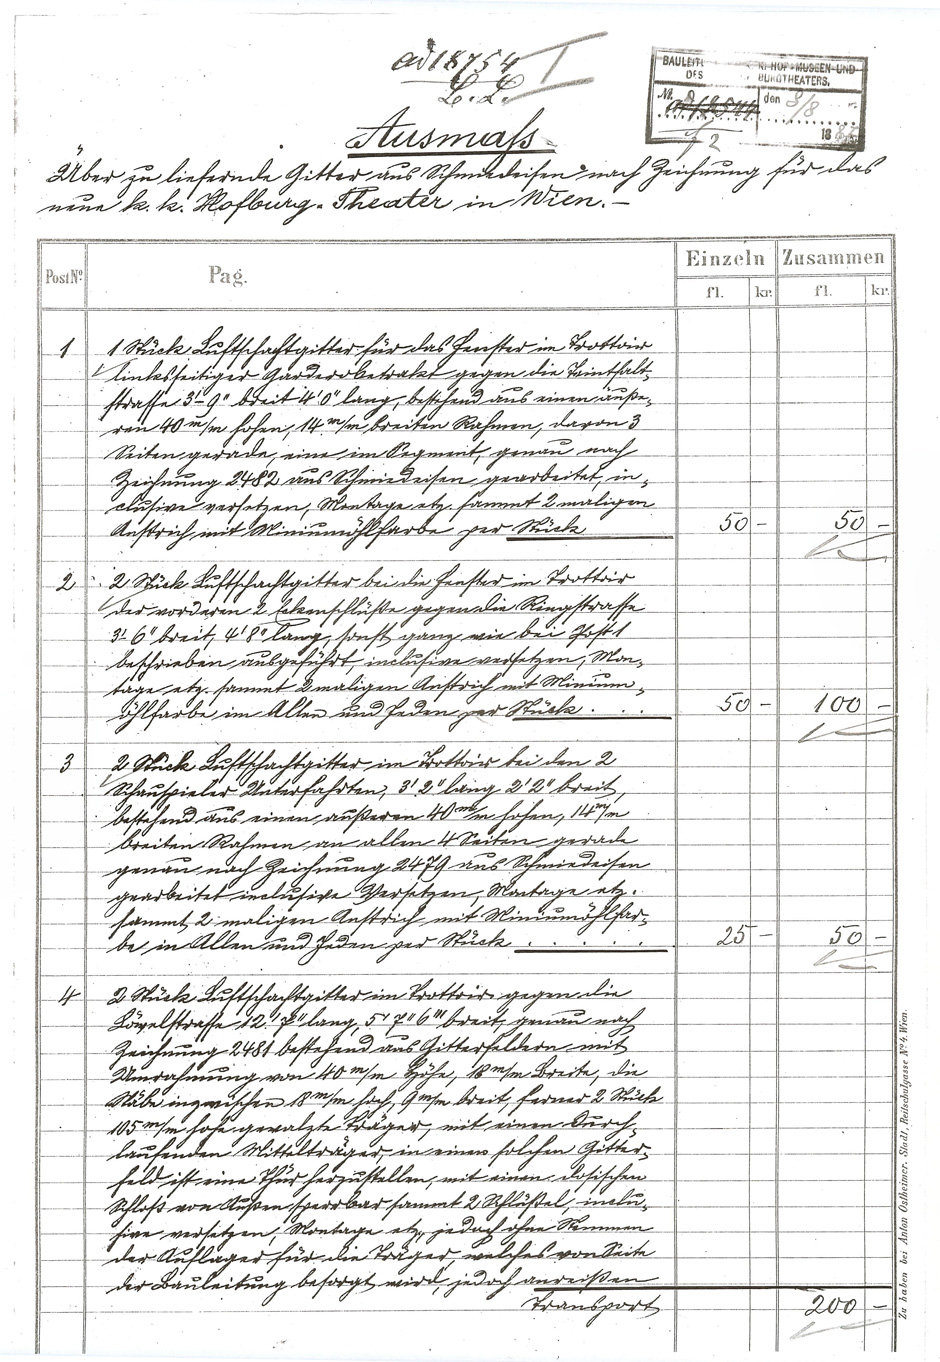 ad 18754
L. L.
I
BAULEIT
K. HOF-MUSEEN-UND-
DES
BURGTHEATERS.
No.
den 3/8
188
Ausmaß
Über zu liefernde Gitter aus Schmiedeisen nach Zeichnung für das
neue k. k. Hofburg-Theater in Wien.–
Post No.
Pag.
Einzeln
Zusammen
fl.
kr.
fl.
kr.
1
1 Stück Luftschachtgitter für das Fenster im Trottoir
linksseitiger Garderobetrakt gegen die Teinfalt-
strasse 3' 9" breit 4' 0" lang, bestehend aus einen äuße-
ren 40 m/m hohen, 14 m/m breiten Rahmen, davon 3
Seiten gerade, eine im Segment, genau nach
Zeichnung 2482 aus Schmiedeisen gearbeitet, in-
clusive versetzen, Montage etz. sammt 2 maligen
Anstrich mit Miniumöhlfarbe per Stück
50 –
50 –
2
2 Stück Luftschachtgitter bei die Fenster im Trottoir
der vorderen 2 Eckenschlüße gegen die Ringstrasse
3' 6" breit, 4' 8" lang, sonst ganz wie bei Post 1
beschrieben ausgeführt, inclusive versetzen, Mon-
tage etz. sammt 2 maligen Anstrich mit Minium-
öhlfarbe im Allen und Jeden per Stück . . .
50 –
100 –
3
2 Stück Luftschachtgitter im Trottoir bei den 2
Schauspieler Unterfahrten, 3' 2" lang 2' 2" breit,
bestehend aus einen außeren 40 m/m hohen, 14 m/m
breiten Rahmen an allen 4 Seiten gerade
genau nach Zeichnung 2479 aus Schmiedeisen
gearbeitet inclusive Versetzen, Montage etz.
sammt 2 maligen Anstrich mit Miniumöhlfar-
be in Allen und Jeden per Stück . . . . .
25 –
50 –
4
2 Stück Luftschachtgitter im Trottoir gegen die
Löwelstrasse 12' 7" lang, 5' 7" 6''' breit, genau nach
Zeichnung 2481 bestehend aus Gitterfeldern mit
Umrahmung von 40 m/m Höhe, 18 m/m Breite, die
Stäbe inzwischen 18 m/m hoch, 9 m/m breit, ferner 2 Stück
105 m/m hohe gewalzte Träger, mit einen durch-
laufenden Mittelträger, in einem solchen Gitter-
feld ist eine Thür herzustellen, mit einen dosischen
Schloß von Außen sperrbar sammt 2 Schlüßel, inclu-
sive versetzen, Montage etz, jedoch ohne Stemmen
der Auflager für die Träger, welches von Seite
der Bauleitung besorgt wird, jedoch anreißen
Transport
200 –
Zu haben bei Anton Ostheimer, Stadt, Reitschulgasse No. 4, Wien.